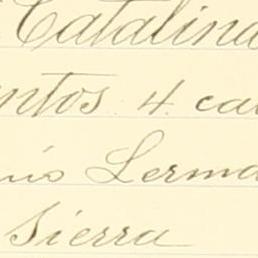 Catalina
ntos 4. ca
nio Lerma
Sierra